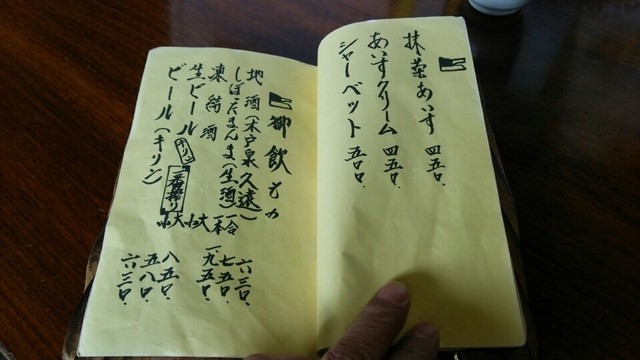 抹茶あいす 四五〇
あいすクリーム 四五〇
シャーベット 五〇〇
御飲もの
地酒(木戸泉 久遠) 一合 六三〇
しぼったまんま(生酒) 一本 七五〇
凍結酒 一、九五〇
生ビール キリン 一番搾り 大 八五〇
小 五八〇
ビール(キリン) 大 六三〇